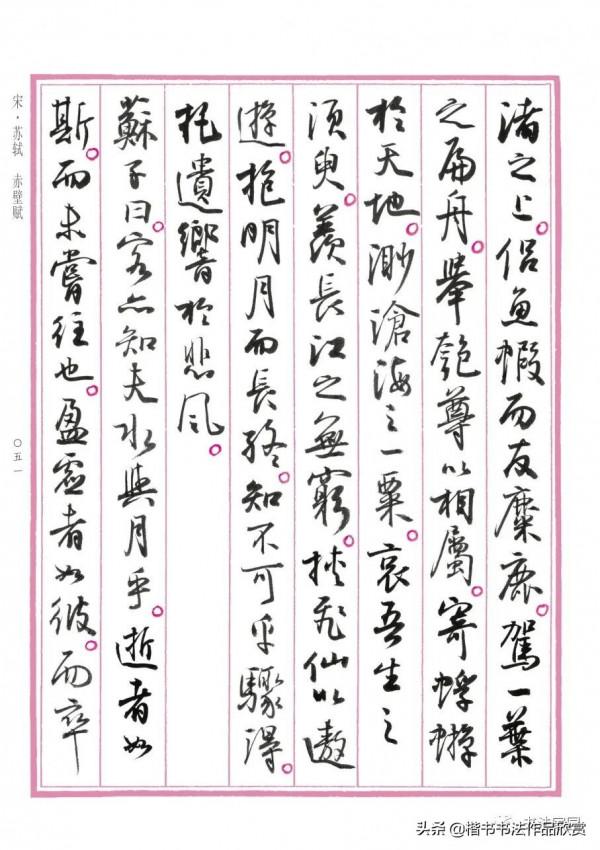 渚之上。侣魚蝦而友麋鹿。駕一葉
之扁舟。舉匏尊以相屬。寄蜉蝣
於天地。渺滄海之一粟。哀吾生之
須臾。羨長江之無窮。挾飛仙以遨
遊。抱明月而長終。知不可乎驟得。
托遺響於悲風。
蘇子曰。客亦知夫水與月乎。逝者如
斯。而未嘗往也。盈虛者如彼。而卒
宋·苏轼 赤壁赋
〇五一
头条 @楷书书法作品欣赏